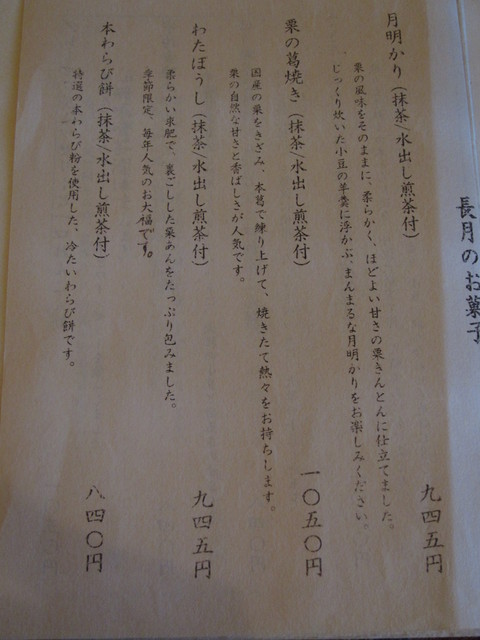 長月のお菓子
月明かり（抹茶/水出し煎茶付） 九四五円
栗の風味をそのままに、柔らかく、ほどよい甘さの栗きんとんに仕立てました。
じっくり炊いた小豆の羊羹に浮かぶ、まんまるな月明かりをお楽しみください。
栗の葛焼き（抹茶/水出し煎茶付） 一〇五〇円
国産の栗をきざみ、本葛で練り上げて、焼きたて熱々をお持ちします。
栗の自然な甘さと香ばしさが人気です。
わたぼうし（抹茶/水出し煎茶付） 九四五円
柔らかい求肥で、裏ごしした栗あんをたっぷり包みました。
季節限定、毎年人気のお大福です。
本わらび餅（抹茶/水出し煎茶付） 八四〇円
特選の本わらび粉を使用した、冷たいわらび餅です。